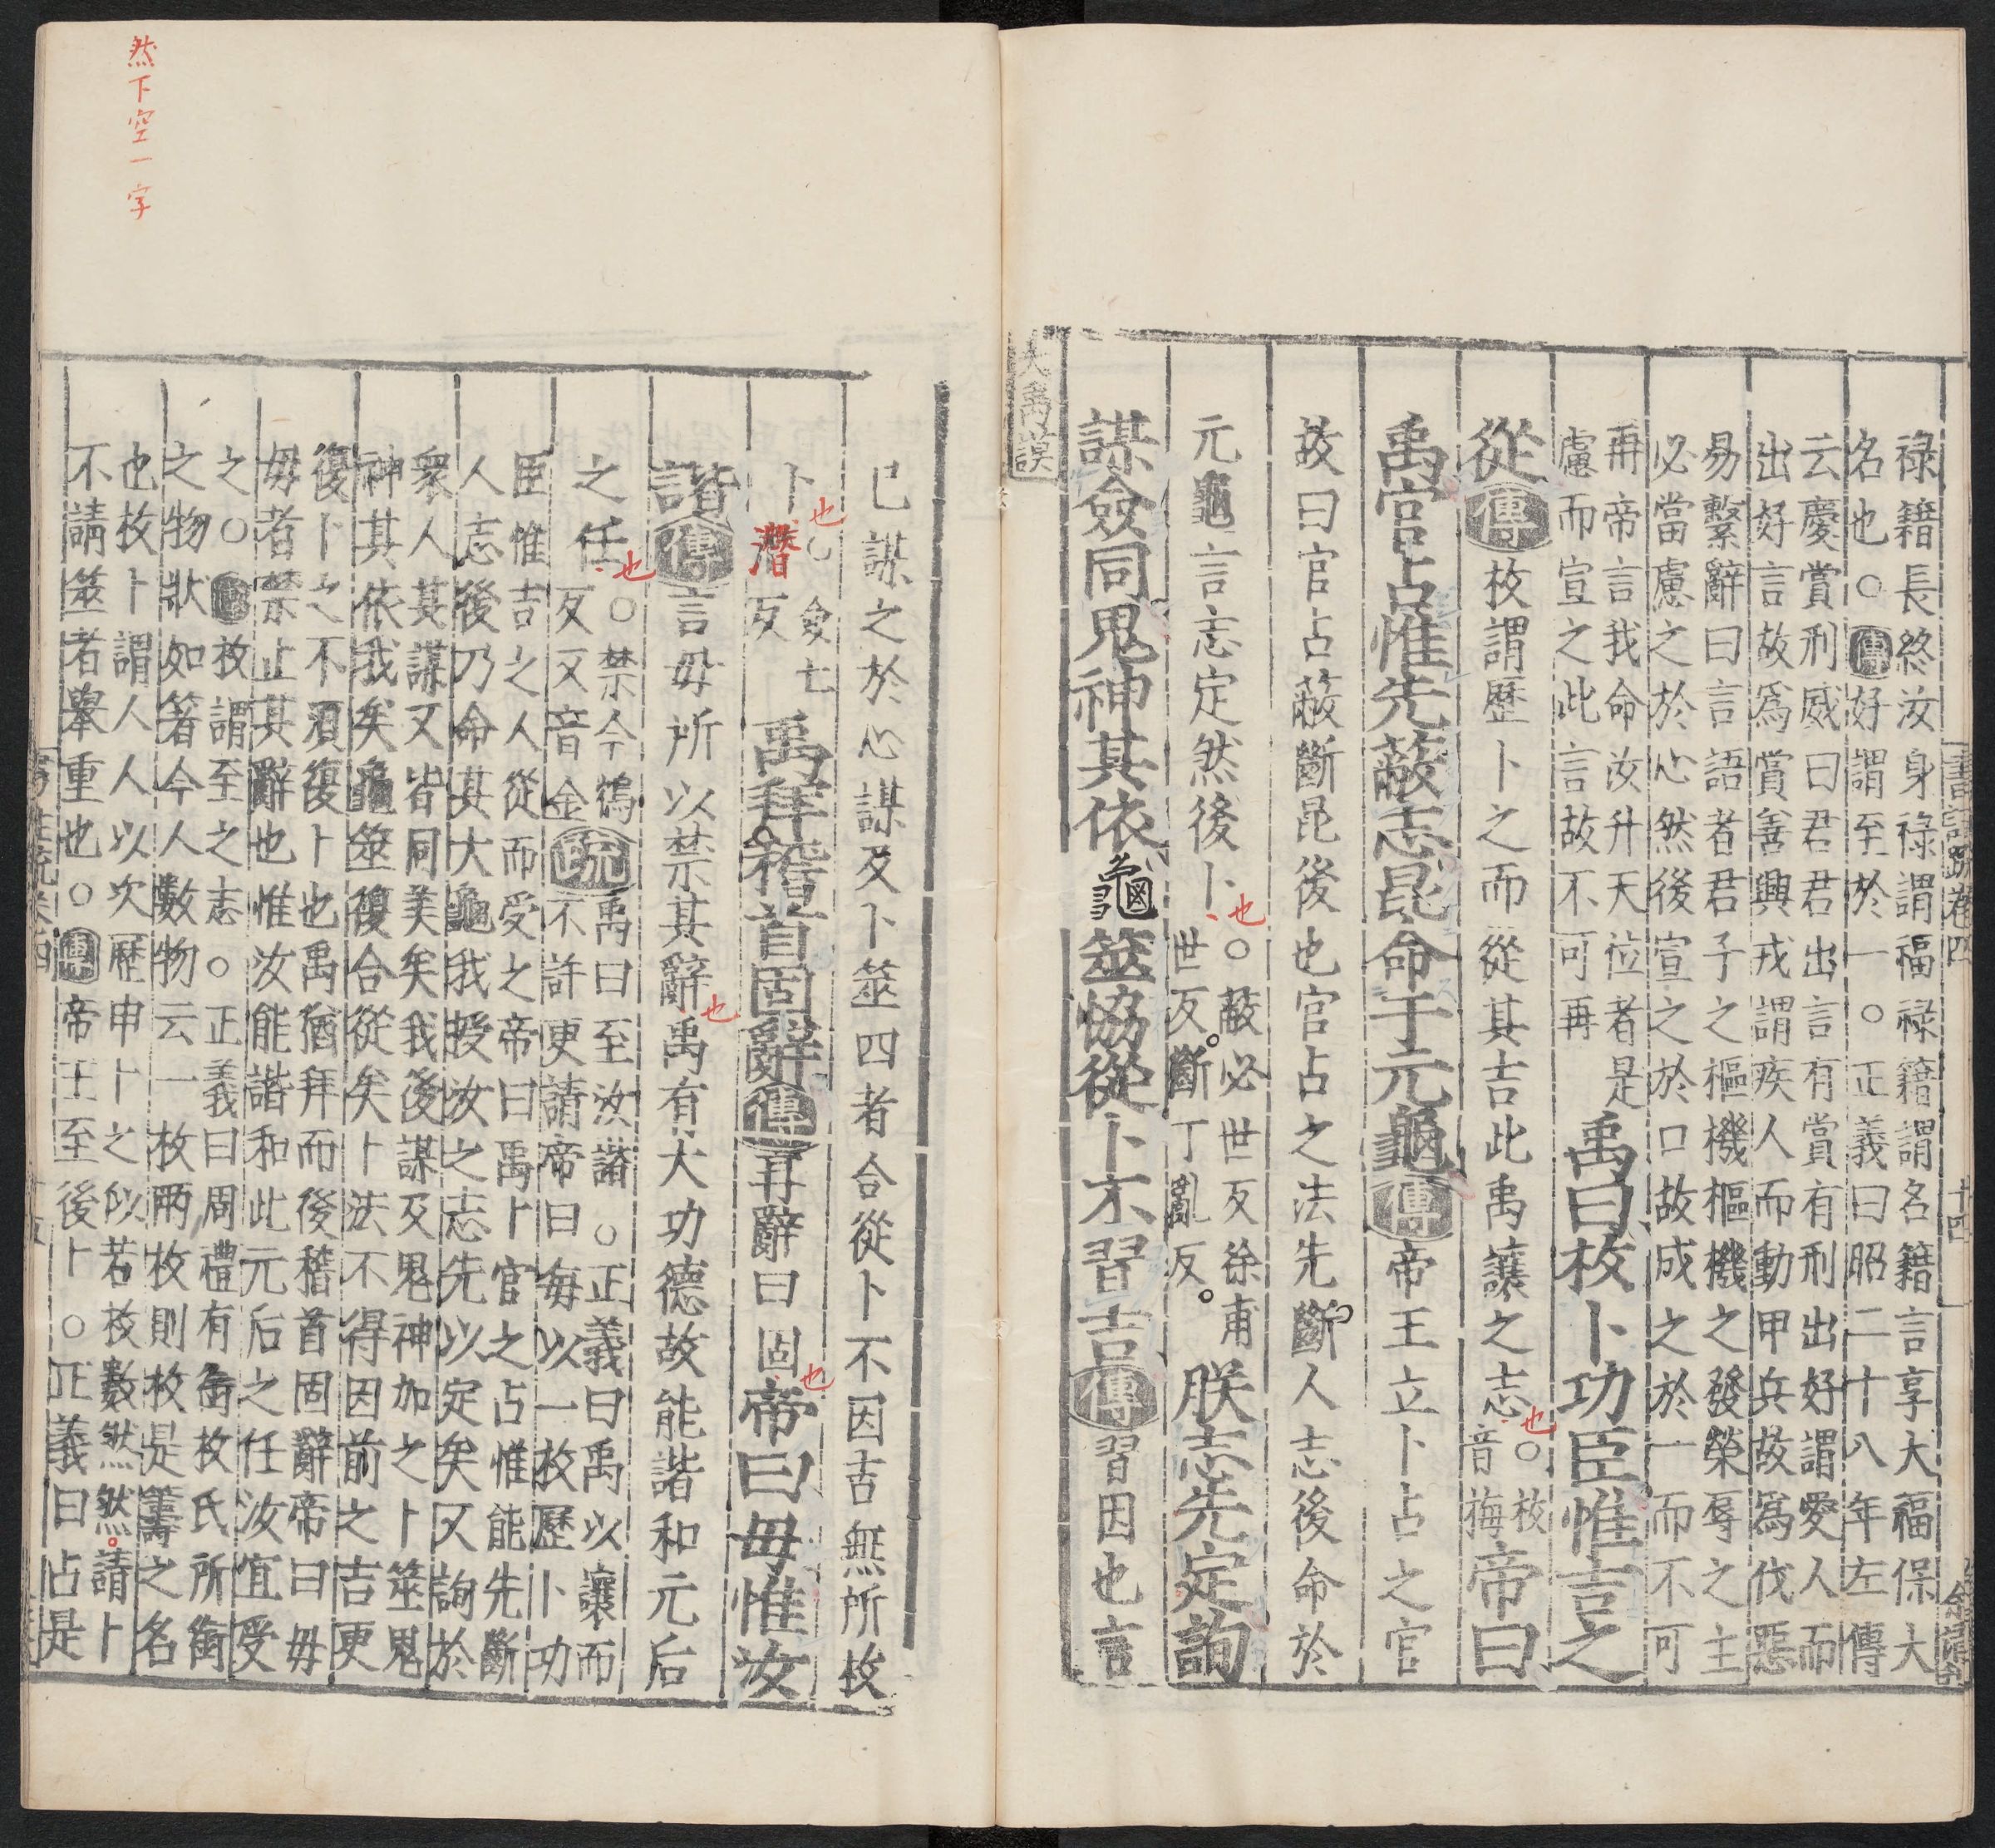 祿籍長終汝身祿謂福祿籍謂名籍言享大福保大
名也○傳好謂至於一○正義曰昭二十八年左傳
云慶賞刑威曰君君出言有賞有刑出好謂愛人而
出好言故爲賞善興戎謂疾人而動甲兵故爲伐惡
易繫辭曰言語者君子之樞機樞機之發榮辱之主
必當慮之於心然後宣之於口故成之於一而不可
再帝言我命汝升天位者是
慮而宣之此言故不可再
禹曰枚卜功臣惟吉之
從傳枚謂歷卜之而從其吉此禹讓之志也○枚
音梅
帝曰
禹官占惟先蔽志昆命于元龜傳帝王立卜占之官
故曰官占蔽斷昆後也官占之法先斷人志後命於
元龜言志定然後卜也○蔽必世反徐甫
世反斷丁亂反
朕志先定詢
謀僉同鬼神其依龜筮協從卜不習吉傳習因也言
大禹謨
書註疏卷四
十四
已謀之於心謀及卜筮四者合從卜不因吉無所枚
卜也○僉七
潛反
禹拜稽首固辭傳再辭曰固也帝曰毋惟汝
諧傳言毋所以禁其辭也禹有大功德故能諧和元后
之任也○禁今鴆
反又音金
疏禹曰至汝諧○正義曰禹以讓而
不許更請帝曰每以一枚歷卜功
臣惟吉之人從而受之帝曰禹卜官之占惟能先斷
人志後乃命其大龜我授汝之志先以定矣又詢於
衆人其謀又皆同美矣我後謀及鬼神加之卜筮鬼
神其依我矣龜筮復合從矣卜法不得因前之吉更
復卜之不須復卜也禹猶拜而後稽首固辭帝曰毋
毋者禁止其辭也惟汝能諧和此元后之任汝宜受
之○傳枚謂至之志○正義曰周禮有銜枚氏所銜
之物狀如箸今人數物云一枚兩枚則枚是籌之名
也枚卜謂人人以次歷申卜之似若枚數然然請卜
不請筮者舉重也○傳帝王至後卜○正義曰占是
然下空一字